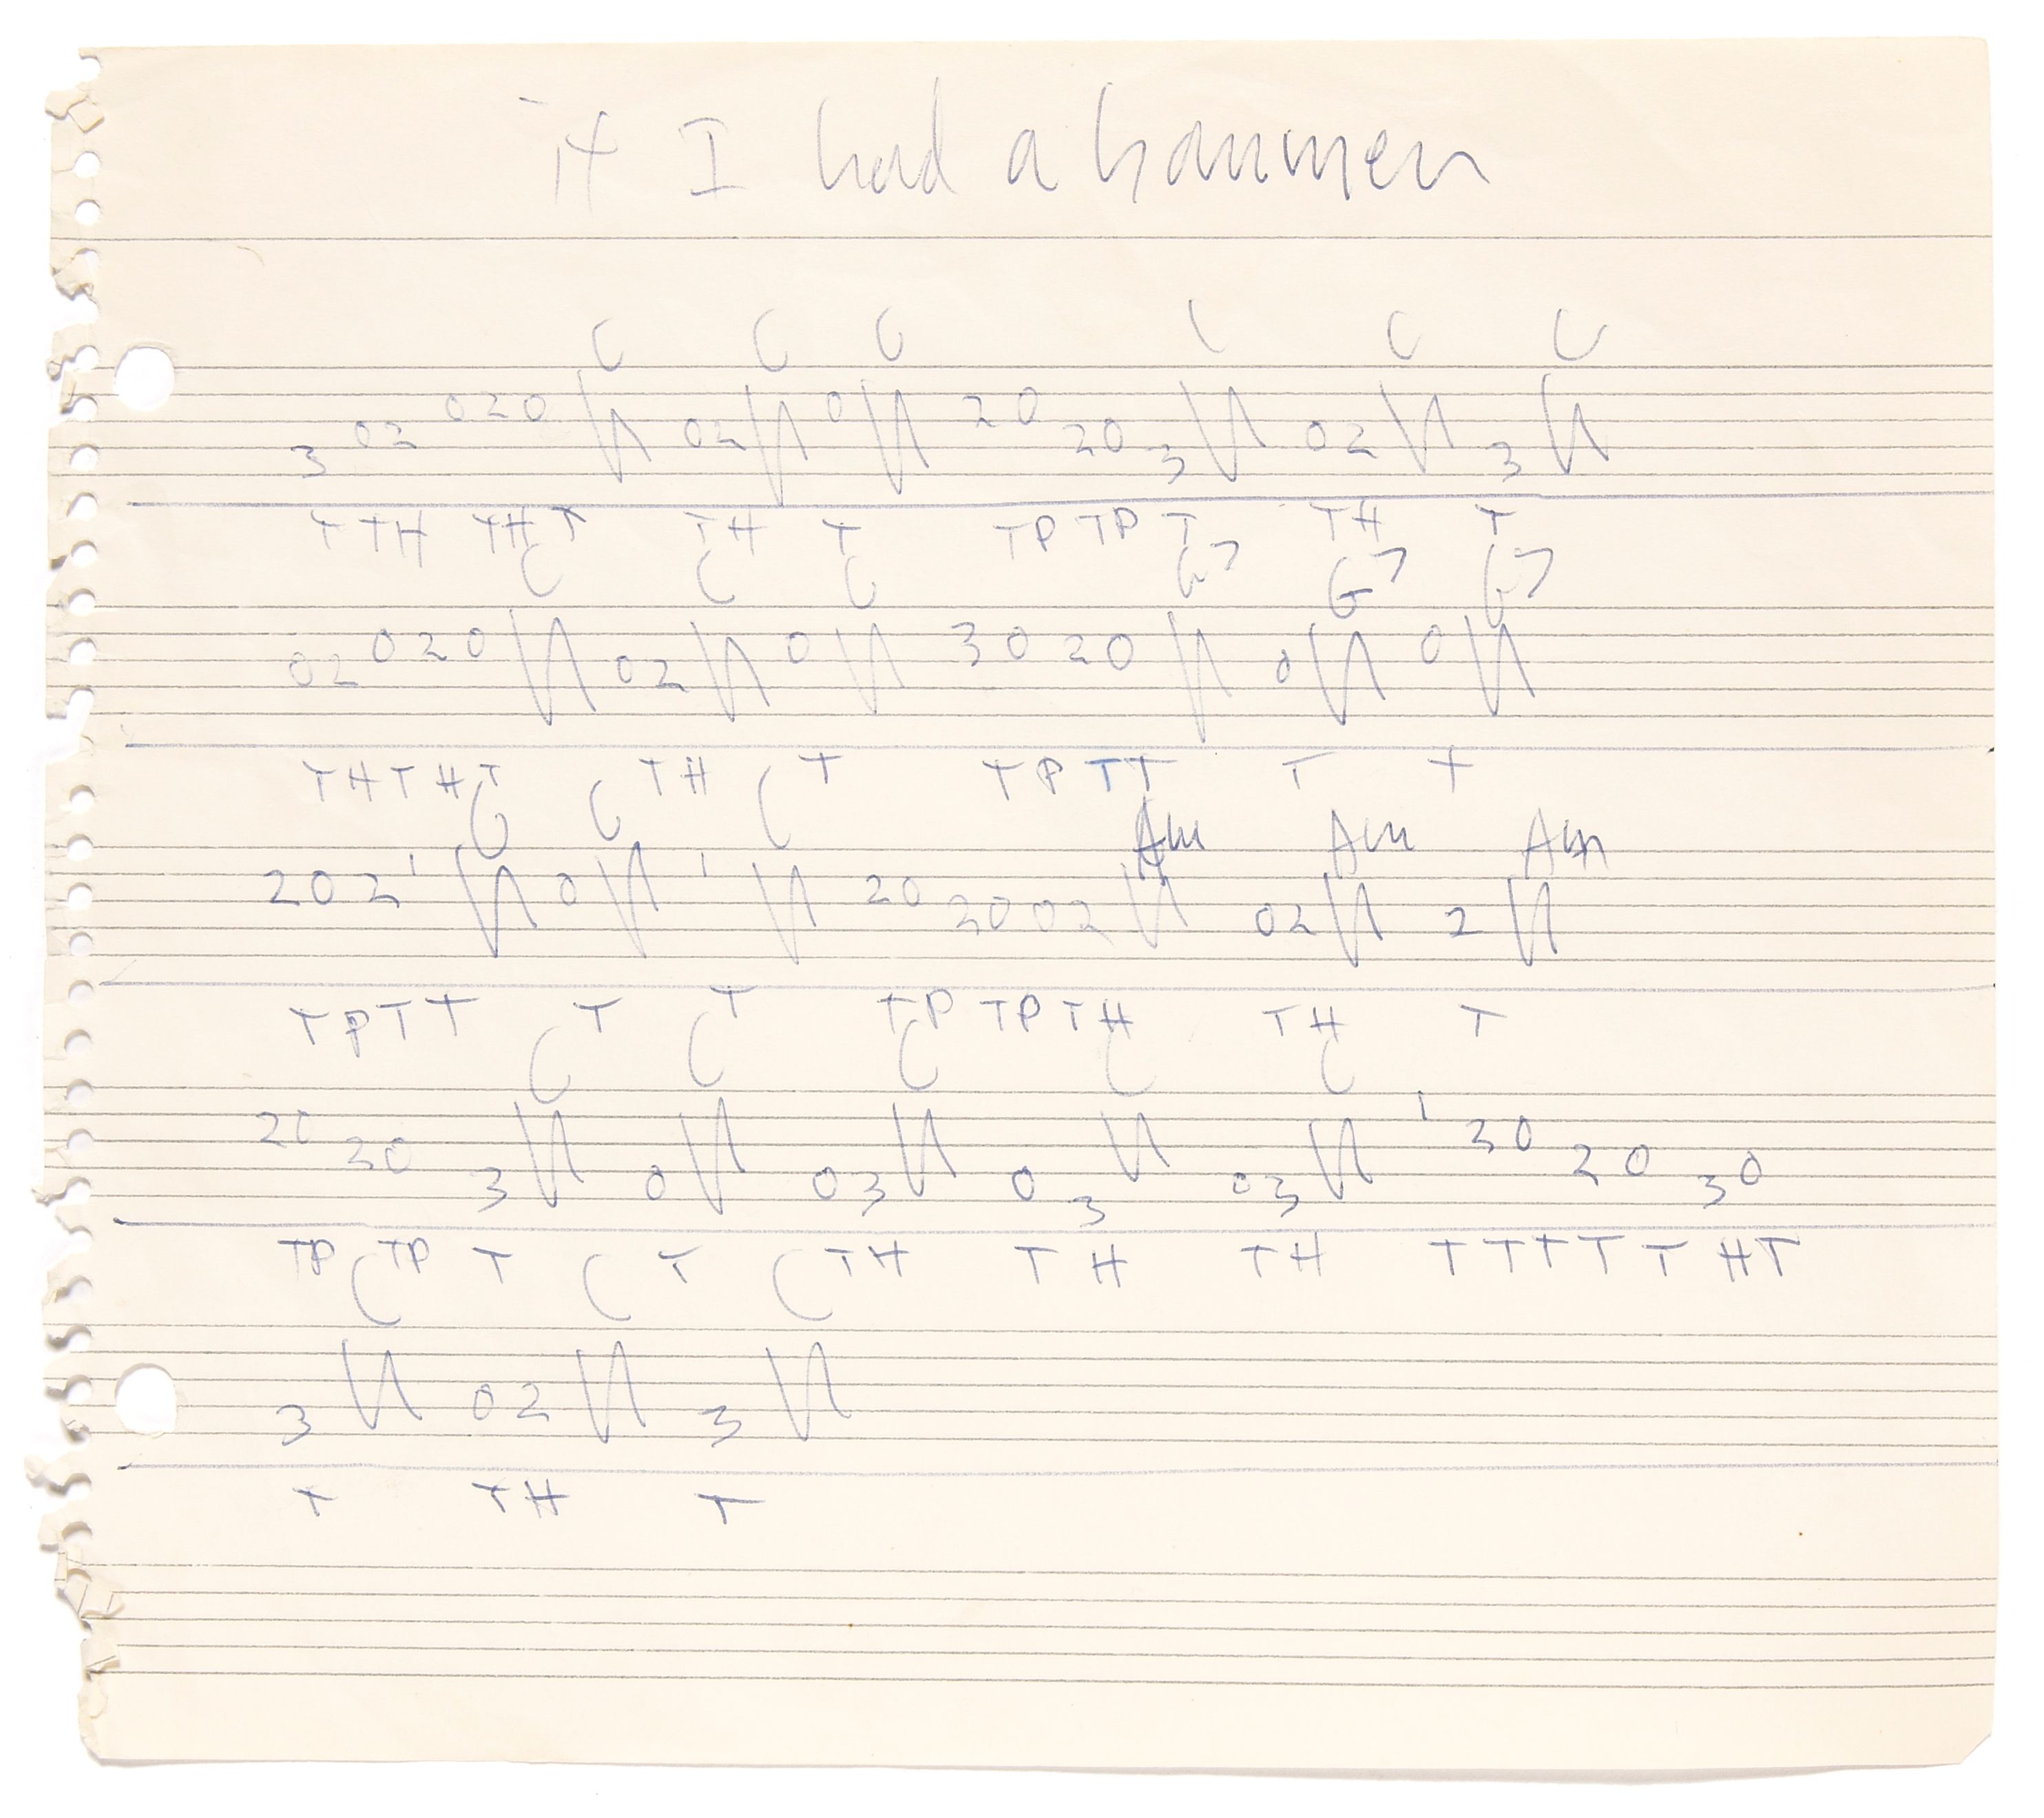 if I had a hammer
C C C C C C
3 02 020 02 0 20 20 3 02 3
T TH THT TH T TP TP T TH T
C C C G7 G7 G7
02 020 02 0 30 20 0 0
THTHT TH T TP TT T T
C C C Am Am Am
202 1 0 1 20 20 02 02 2
TPTT T T TP TP TH TH T
C C C C C
20 20 3 0 03 0 3 03 1 30 20 30
TP TP T T TH T H TH T T T T T HT
C C C
3 02 3
T TH T